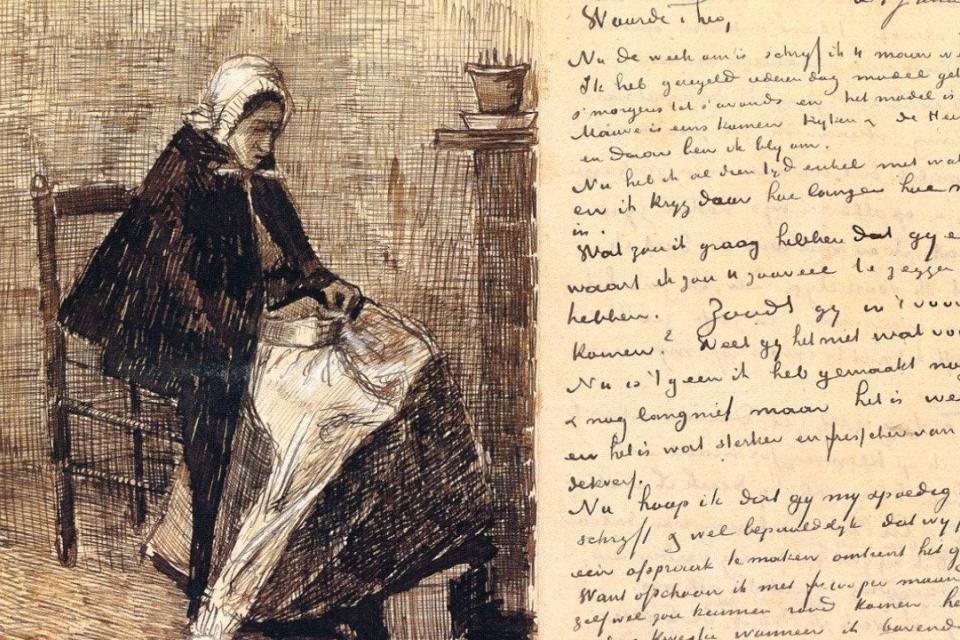 Waarde Theo,
Nu de week om is schryf ik u maar we
Ik heb geregeld iederen dag model geh
s'morgens tot s'avonds en het model is
Mauve is eens komen kyken & de Heu
en daar ben ik bly om.
Nu heb ik al dien tyd enkel met wat
en ik kryg daar hoe langer hoe m
in.
Wat zou ik graag hebben dat gy e
waart ik zou u zooveel te zeggen
hebben. Zoudt gy in 't voor
komen? Weet gy het niet wat voo
Nu is 't geen ik heb gemaakt nog
& nog lang niet maar het is we
en het is wat sterker en frisscher van
dekverf.
Nu hoop ik dat gy my spoedig
schryft & wel bepaaldelyk dat wy
een afspraak te maken omtrent het g
Want ofschoon ik met fr 100 per maan
zelf wel zou kunnen rond komen he
kwestie wanneer ik bovend